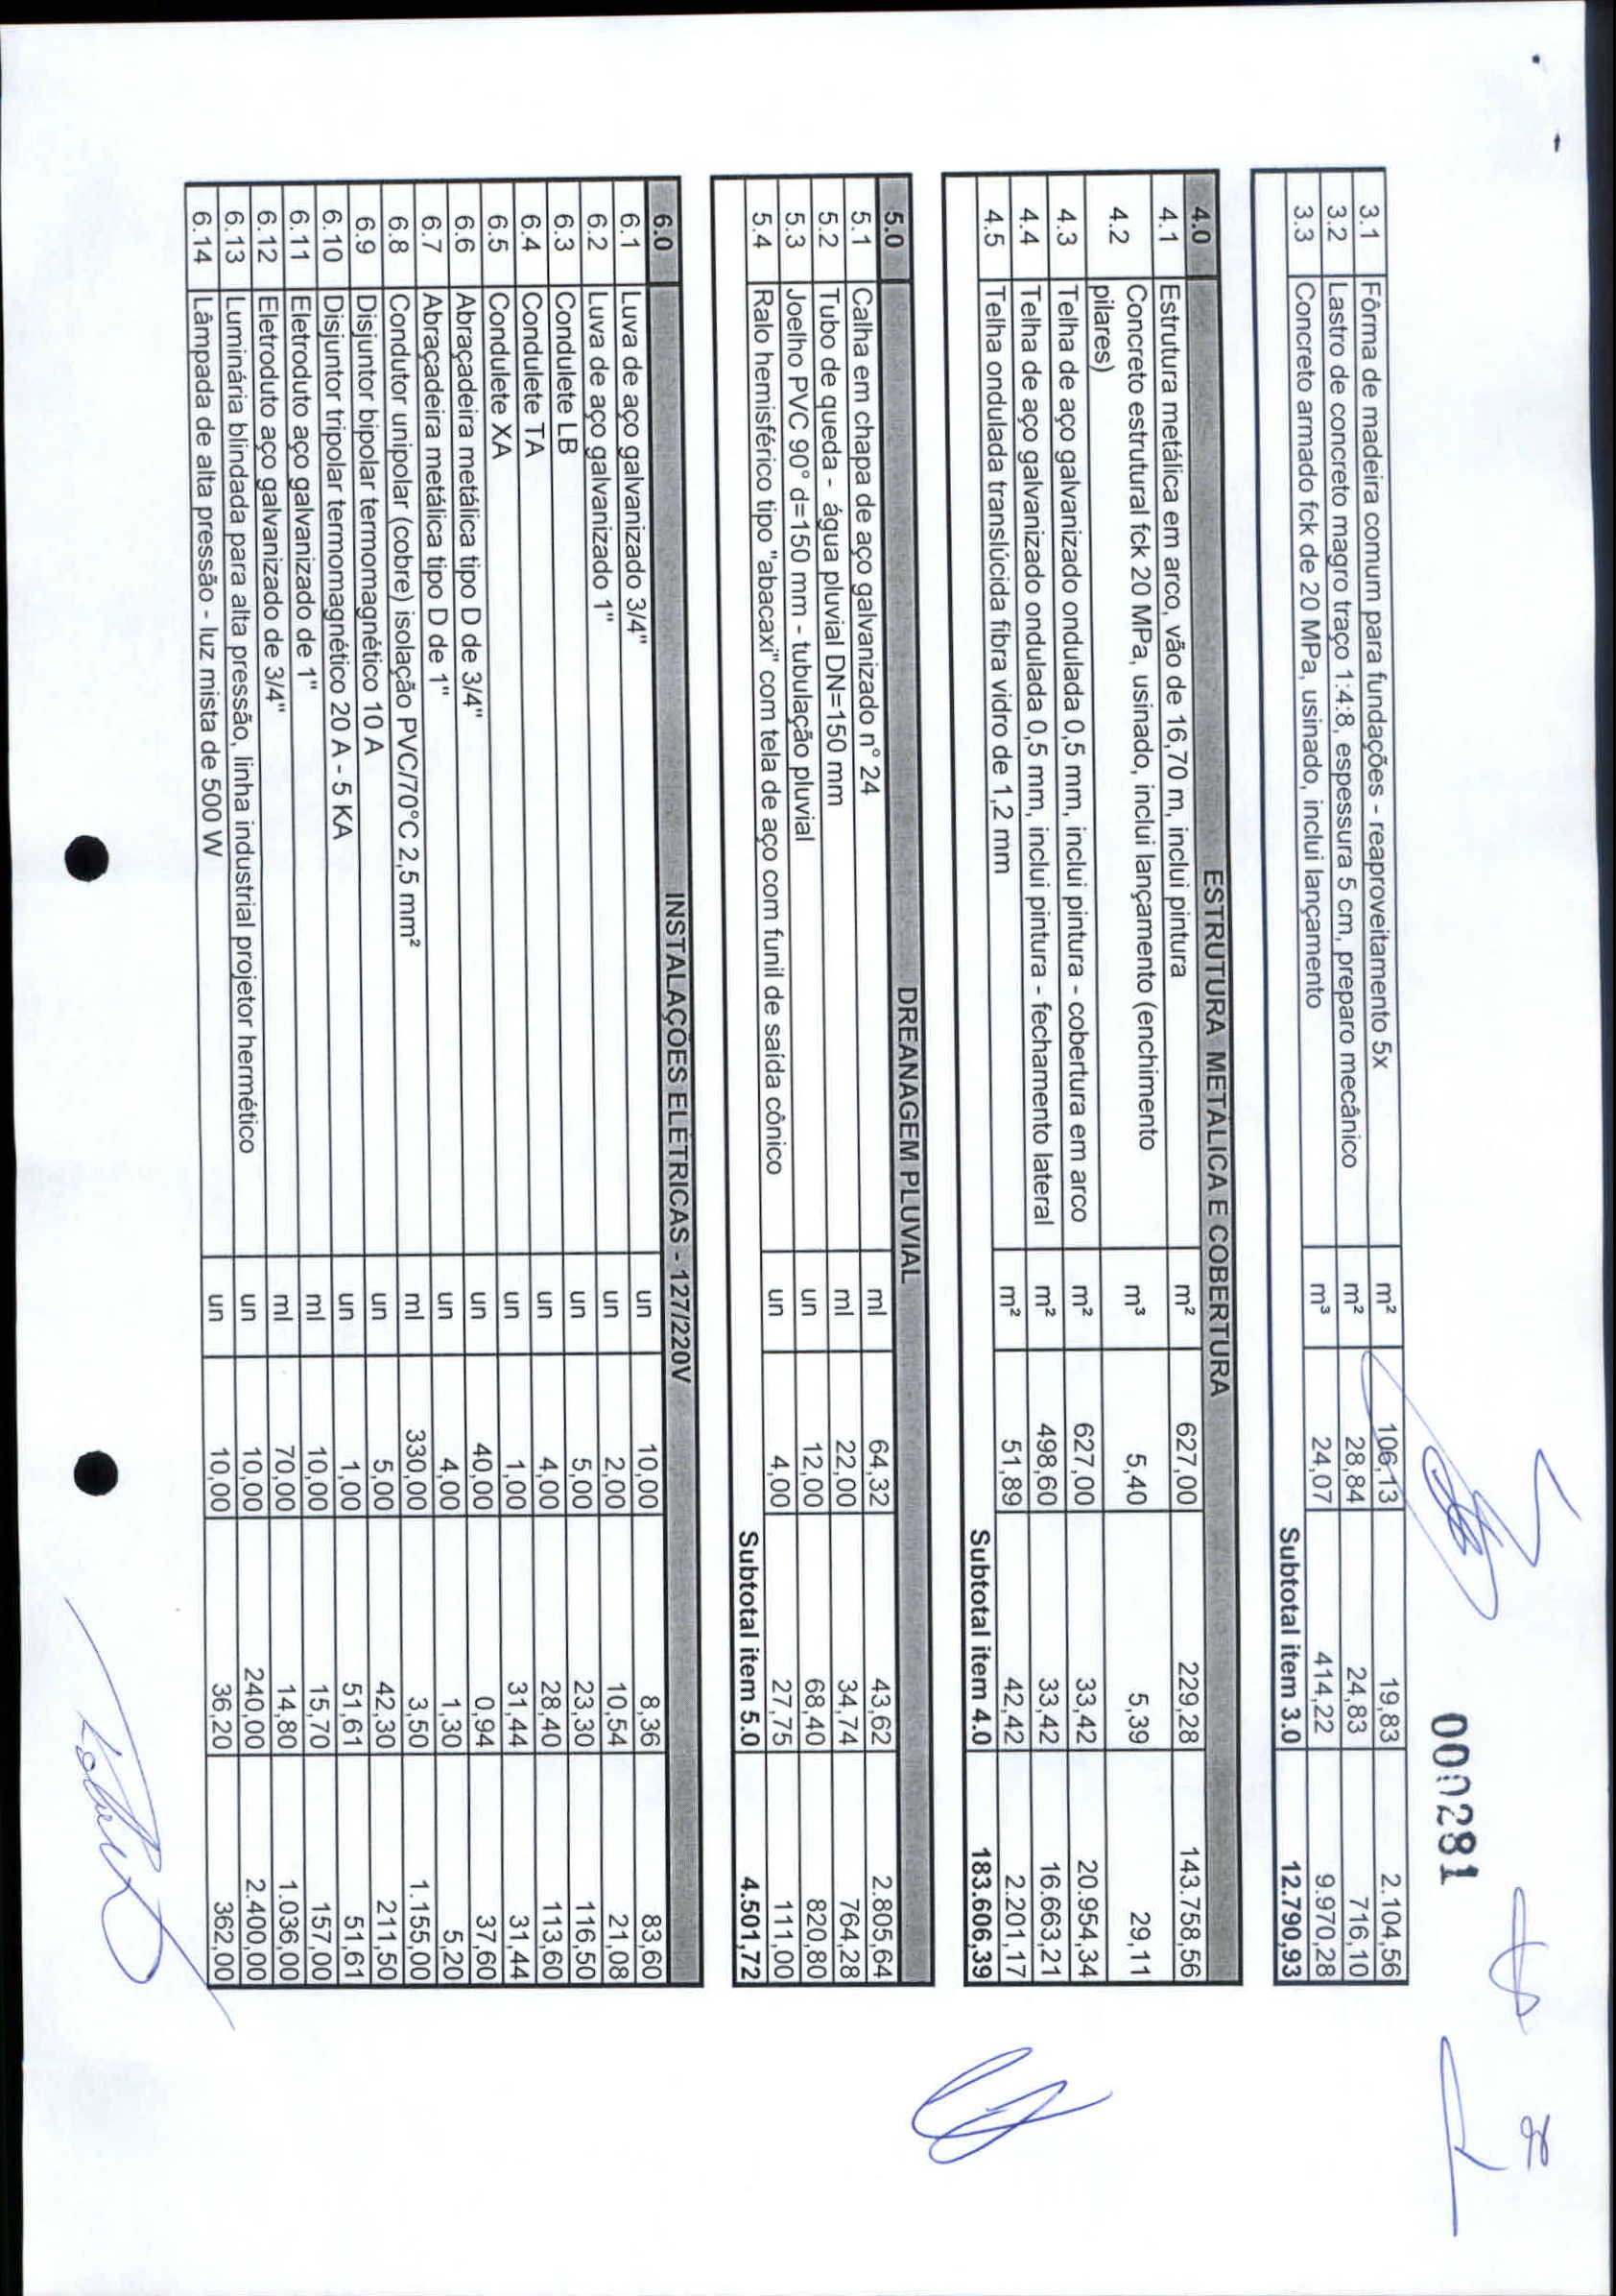 000281
3.1 Fôrma de madeira comum para fundações - reaproveitamento 5x m² 106,13 19,83 2.104,56
3.2 Lastro de concreto magro traço 1:4:8, espessura 5 cm, preparo mecânico m² 28,84 24,83 716,10
3.3 Concreto armado fck de 20 MPa, usinado, inclui lançamento m³ 24,07 414,22 9.970,28
Subtotal item 3.0 12.790,93
4.0 ESTRUTURA METÁLICA E COBERTURA
4.1 Estrutura metálica em arco, vão de 16,70 m, inclui pintura m² 627,00 229,28 143.758,56
4.2 Concreto estrutural fck 20 MPa, usinado, inclui lançamento (enchimento
pilares) m³ 5,40 5,39 29,11
4.3 Telha de aço galvanizado ondulada 0,5 mm, inclui pintura - cobertura em arco m² 627,00 33,42 20.954,34
4.4 Telha de aço galvanizado ondulada 0,5 mm, inclui pintura - fechamento lateral m² 498,60 33,42 16.663,21
4.5 Telha ondulada translúcida fibra vidro de 1,2 mm m² 51,89 42,42 2.201,17
Subtotal item 4.0 183.606,39
5.0 DREANAGEM PLUVIAL
5.1 Calha em chapa de aço galvanizado n° 24 ml 64,32 43,62 2.805,64
5.2 Tubo de queda - água pluvial DN=150 mm ml 22,00 34,74 764,28
5.3 Joelho PVC 90° d=150 mm - tubulação pluvial un 12,00 68,40 820,80
5.4 Ralo hemisférico tipo "abacaxi" com tela de aço com funil de saída cônico un 4,00 27,75 111,00
Subtotal item 5.0 4.501,72
6.0 INSTALAÇÕES ELÉTRICAS - 127/220V
6.1 Luva de aço galvanizado 3/4" un 10,00 8,36 83,60
6.2 Luva de aço galvanizado 1" un 2,00 10,54 21,08
6.3 Condulete LB un 5,00 23,30 116,50
6.4 Condulete TA un 4,00 28,40 113,60
6.5 Condulete XA un 1,00 31,44 31,44
6.6 Abraçadeira metálica tipo D de 3/4" un 40,00 0,94 37,60
6.7 Abraçadeira metálica tipo D de 1" un 4,00 1,30 5,20
6.8 Condutor unipolar (cobre) isolação PVC/70°C 2,5 mm² ml 330,00 3,50 1.155,00
6.9 Disjuntor bipolar termomagnético 10 A un 5,00 42,30 211,50
6.10 Disjuntor tripolar termomagnético 20 A - 5 KA un 1,00 51,61 51,61
6.11 Eletroduto aço galvanizado de 1" ml 10,00 15,70 157,00
6.12 Eletroduto aço galvanizado de 3/4" ml 70,00 14,80 1.036,00
6.13 Luminária blindada para alta pressão, linha industrial projetor hermético un 10,00 240,00 2.400,00
6.14 Lâmpada de alta pressão - luz mista de 500 W un 10,00 36,20 362,00